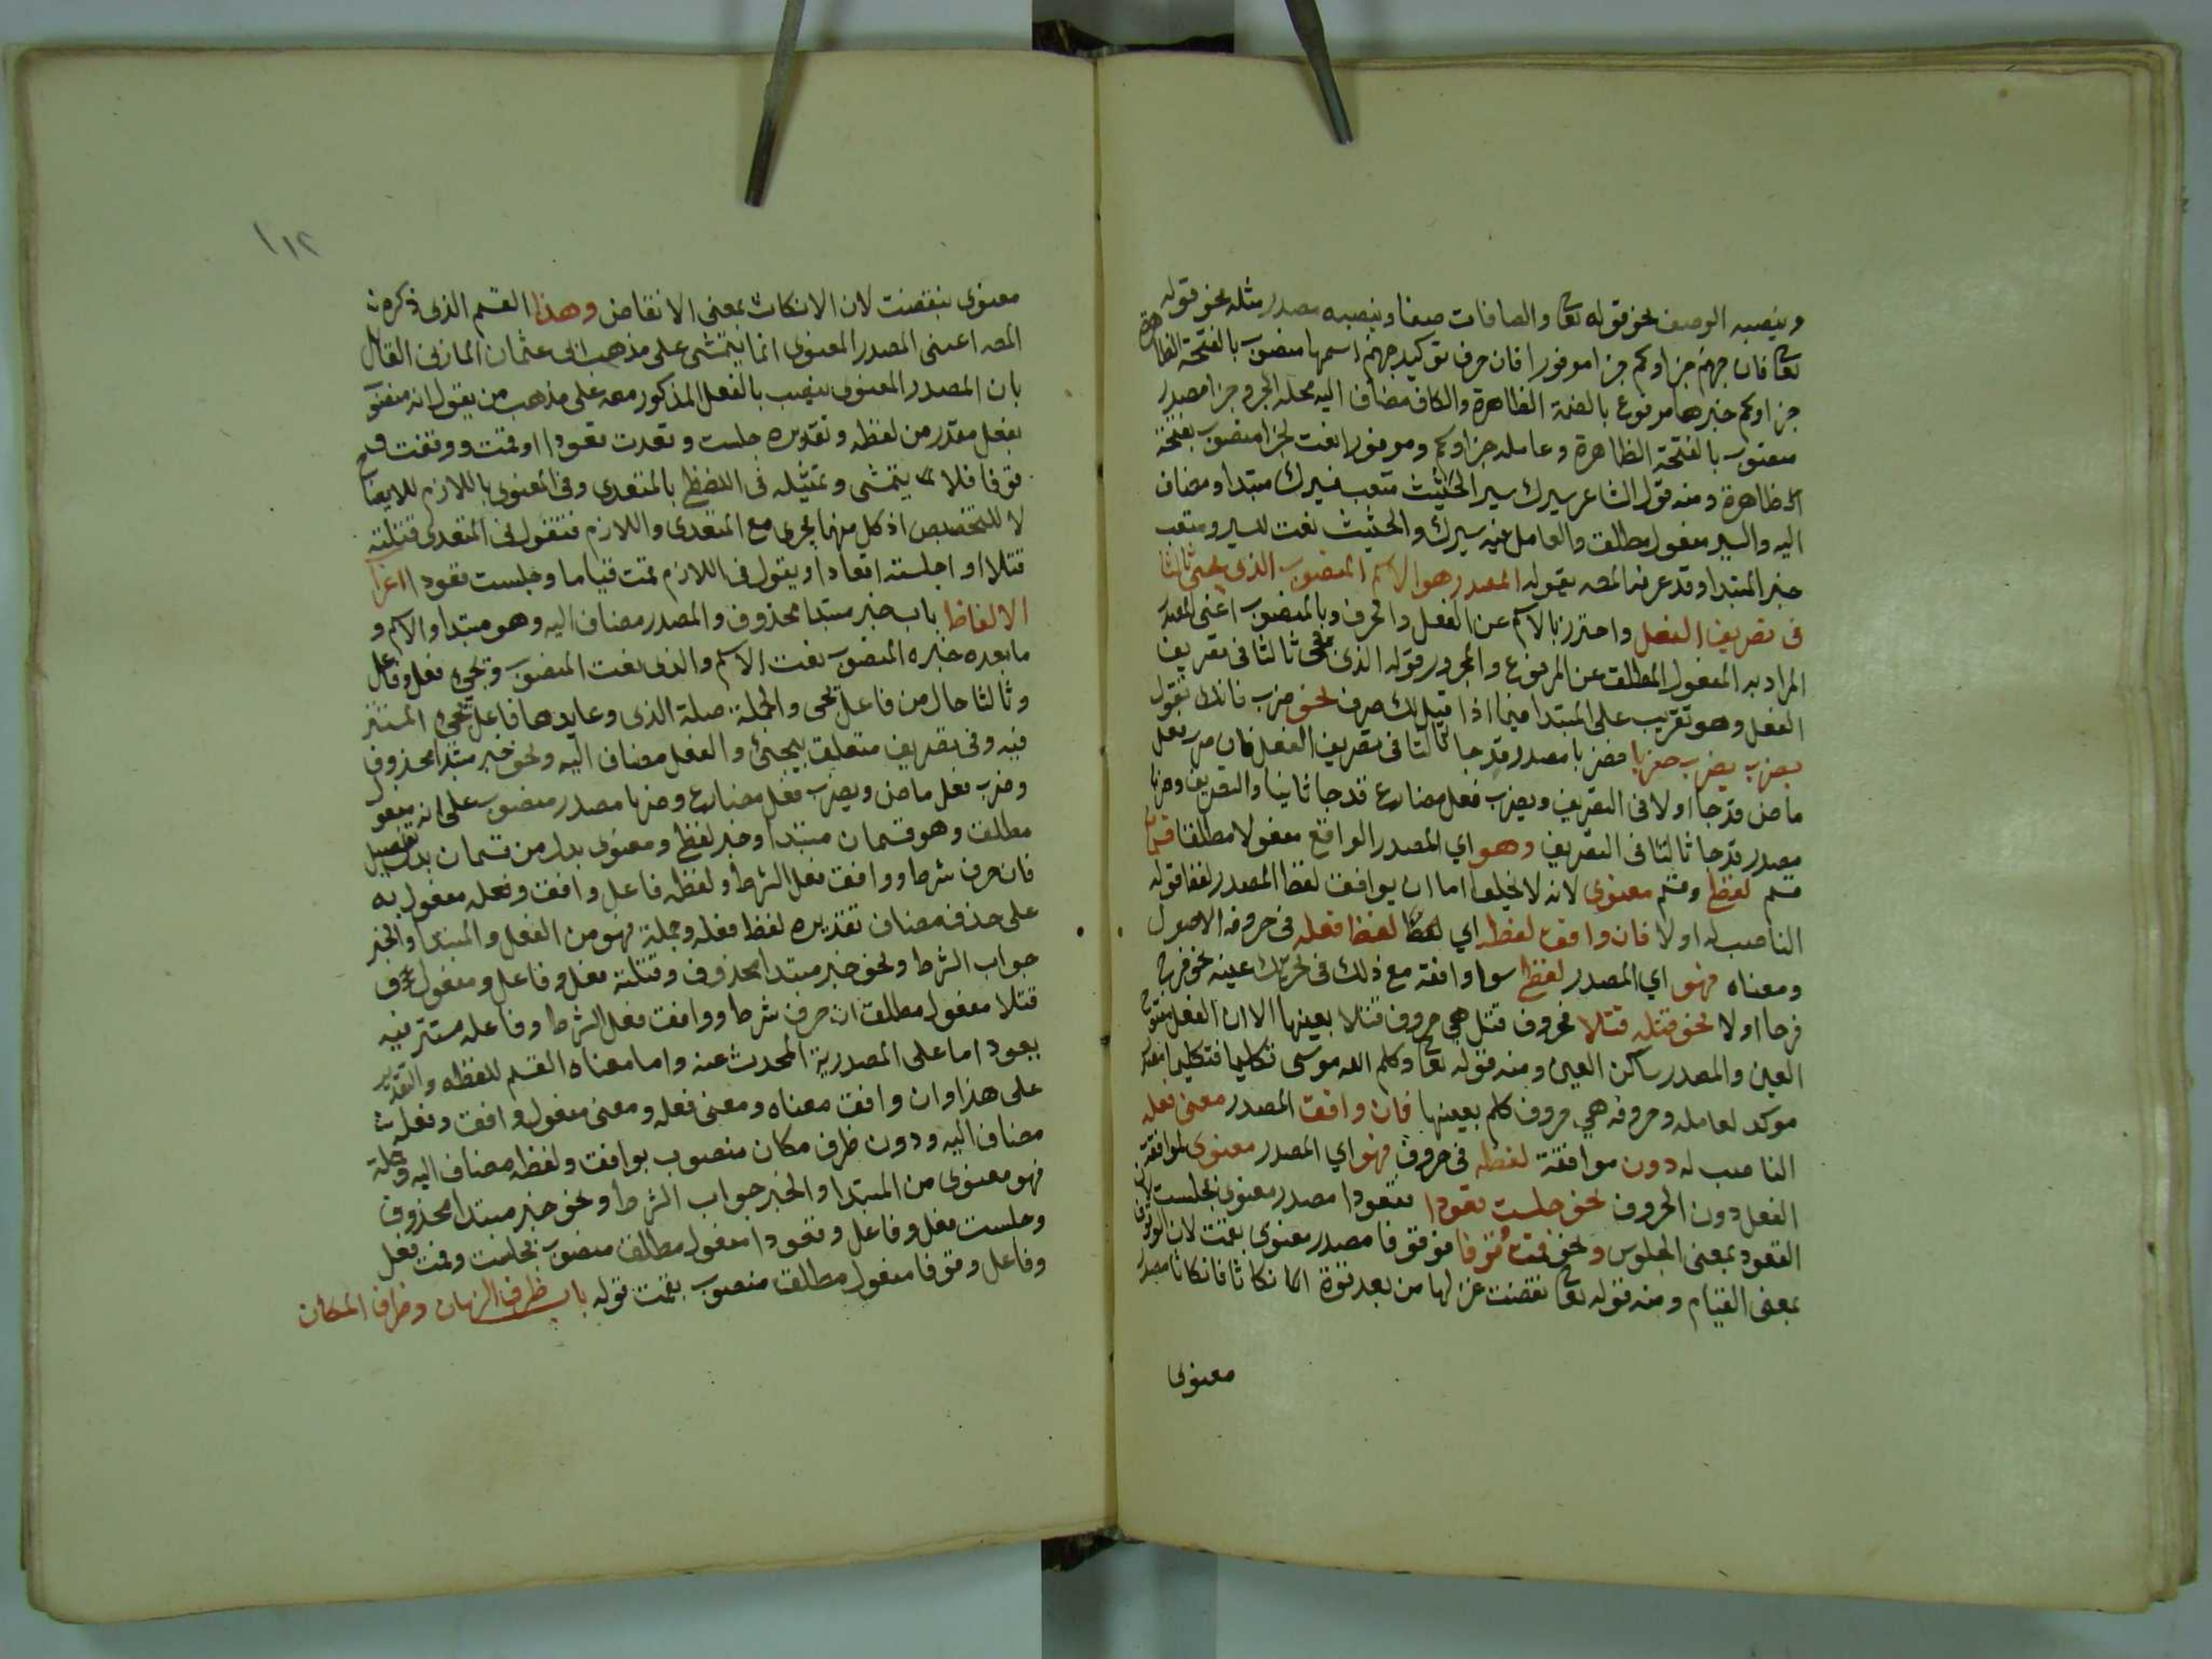 وينصبه الوصف نحو قوله تعا والصافات صفا وينصبه مصدر مثله نحو قوله
تعا فان جهنم جزاوكم جزا موفورا فان حرف توكيد جهنم اسمها منصوب بالفتحة الظاهرة
جزاوكم خبرها مرفوع بالضمة الظاهرة والكاف مضاف اليه محله الجر وجزا مصدر
منصوب بالفتحة الظاهرة وعامله جزاوكم وموفورا نعت لجزا منصوب بفتحة
ظاهرة ومنه قول الشاعر سيرك سير الحثيث متعب فسيرك مبتدا ومضاف
اليه والسير مفعول مطلق والعامل فيه سيرك والحثيث نعت للسير ومتعب
خبر المبتدا وقد عرفه المصه بقوله المصدر هو الاسم المنصوب الذي يجئ ثالثا
في تصريف الفعل واحترز بالاسم عن الفعل والحرف وبالمنصوب اعني المصدر
المراد به المفعول المطلق عن المرفوع والمجرور قوله الذي يجئ ثالثا في تصريف
الفعل وهو تقريب على المبتدا فيما اذا قيل لك صرف نحو ضرب فانك تقول
ضرب يضرب ضربا فضربا مصدر قد جا ثالثا في تصريف الفعل فان ضرب فعل
ماض قد جا اولا في التصريف ويضرب فعل مضارع قد جا ثانيا والتصريف وضربا
مصدر قد جا ثالثا في التصريف وهو اي المصدر الواقع مفعولا مطلقا قسمان
قسم لفظي وقسم معنوي لانه لا يخلو اما ان يوافق لفظ المصدر لفظ فعله
الناصب له اولا فان وافق لفظه اي لفظ المصدر لفظ فعله في حروفه الاصول
ومعناه فهو اي المصدر لفظي سوا وافقه مع ذلك في تحريك عينه نحو فرح
فرحا اولا نحو قتله قتلا فحروف قتل هي حروف قتلا بعينها الا ان الفعل مفتوح
العين والمصدر ساكن العين ومنه قوله تعا وكلم الله موسى تكليما فتكليما مصدر
موكد لعامله وحروفه هي حروف كلم بعينها فان وافق المصدر معنى فعله
الناصب له دون موافقة لفظه في حروف فهو اي المصدر معنوي لموافقة
الفعل دون الحروف نحو جلست قعودا فقعودا مصدر معنوي بجلست لان
القعود بمعنى الجلوس ونحو قمت وقوفا فوقوفا مصدر معنوي بقمت لان الوقوف
بمعنى القيام ومنه قوله تعا نقضت غزلها من بعد قوة انكاثا فانكاثا مصدر
معنوي
١١٢
معنوي بنقضت لان الانكاث بمعنى الانقاض وهذا القسم الذي ذكره
المصه اعني المصدر المعنوي انما يتمشى على مذهب ابي عثمان المازني القائل
بان المصدر المعنوي ينصب بالفعل المذكور معه على مذهب من يقول انه منصوب
بفعل مقدر من لفظه وتقديره جلست وقعدت قعودا او قمت ووقفت
وقوفا فلا يتمشى وتمثيله في اللفظي بالمتعدي وفي المعنوي باللازم للايضاح
لا للتخصيص اذ كل منهما يجري مع المتعدي واللازم فتقول في المتعدي قتلته
قتلا او اجلسته اقعادا ويقول في اللازم قمت قياما وجلست قعودا اعراب
الالفاظ باب خبر مبتدا محذوف والمصدر مضاف اليه وهو مبتدا والاسم و
ما بعده خبره المنصوب نعت الاسم والذي نعت المنصوب ويجئ فعل وفاعل
وثالثا حال من فاعل يجئ والجملة صلة الذي وعايدها فاعل يجئ المستتر
فيه وفي تصريف متعلق بيجئ والفعل مضاف اليه ونحو خبر مبتدا محذوف
وضرب فعل ماض ويضرب فعل مضارع وضربا مصدر منصوب على انه مفعول
مطلق وهو قسمان مبتدا وخبر لفظي ومعنوي بدل من قسمان بدل تفصيل
فان حرف شرط ووافق فعل الشرط ولفظه فاعل وافق وفعله مفعول به
على حذف مضاف تقديره لفظ فعله وجملة فهو من الفعل والمبتدا والخبر
جواب الشرط ونحو خبر مبتدا محذوف وقتلته فعل وفاعل ومفعول
قتلا مفعول مطلق ان حرف شرط ووافق فعل الشرط وفاعله مستتر فيه
يعود اما على المصدرية المحدث عنه واما معناه القسم للفظه والتقدير
على هذا وان وافق معناه ومعنى فعله ومعنى مفعول وافق وفعله
مضاف اليه ودون ظرف مكان منصوب بوافق ولفظه مضاف اليه وجملة
فهو معنوي من المبتدا والخبر جواب الشرط ونحو خبر مبتدا محذوف
وجلست فعل وفاعل وقعودا مفعول مطلق منصوب بجلست وقمت فعل
وفاعل وقوفا مفعول مطلق منصوب بقمت قوله باب ظرف الزمان وظرف المكان